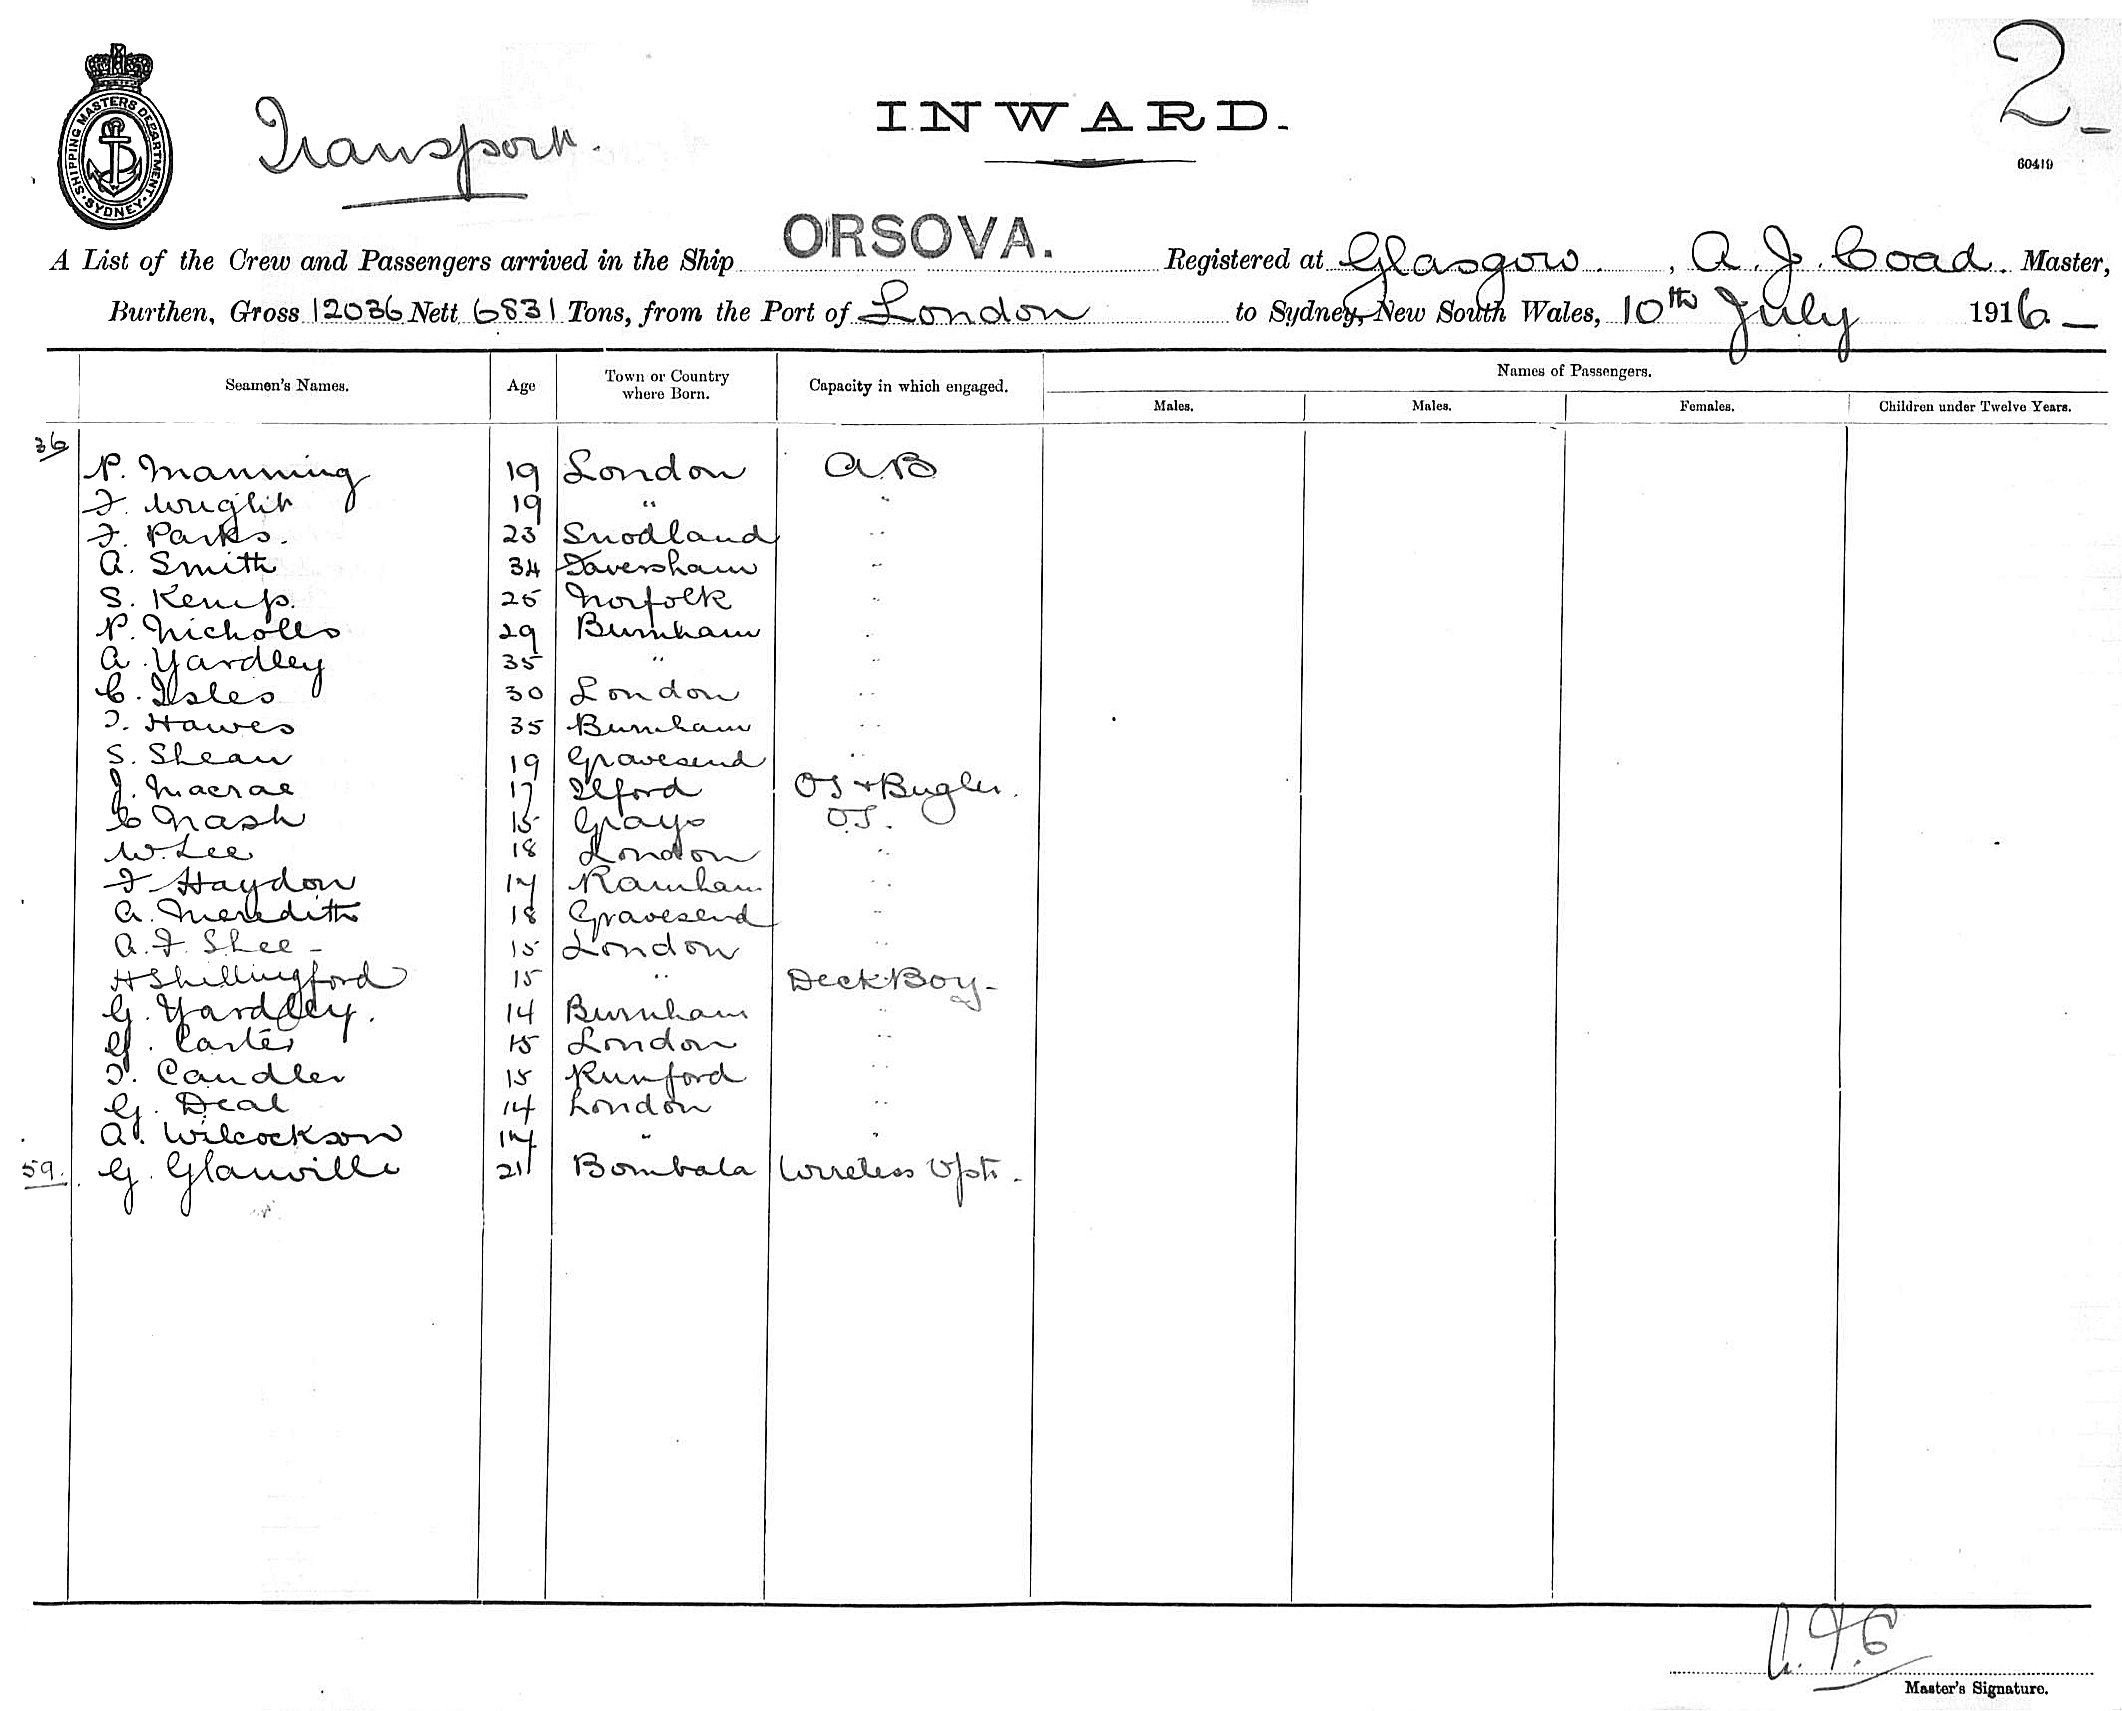 SHIPPING MASTERS DEPARTMENT. SYDNEY.
Transport.
INWARD.
2
60419
A List of the Crew and Passengers arrived in the Ship ORSOVA. Registered at Glasgow, A. J. Coad. Master,
Burthen, Gross 12036 Nett 6831 Tons, from the Port of London to Sydney, New South Wales, 10th July 1916.
Names of Passengers.
Seamen's Names. Age Town or Country where Born. Capacity in which engaged. Males. Males. Females. Children under Twelve Years.
36
P. Manning 19 London A.B
F. Wright 19 " "
F. Parks. 23 Snodland "
A. Smith 34 Faversham "
S. Kemp. 25 Norfolk "
P. Nicholls 29 Burnham "
A. Yardley 35 " "
C. Isles 30 London "
T. Hawes 35 Burnham "
S. Shean 19 Gravesend "
J. Macrae 17 Ilford OS + Bugler.
C Nash 15 Grays O.S.
W. Lee 18 London "
F Haydon 17 Rainham "
A. Meredith 18 Gravesend "
A. F. Shee 15 London "
H Shillingford 15 " Deck Boy
G. Yardley. 14 Burnham "
G. Carter 15 London "
T. Candler 15 Rumford "
G. Deal 14 London "
A. Wilcockson 14 " "
59. G. Glanville 21 Bombala Wireless Optr.
Master's Signature.